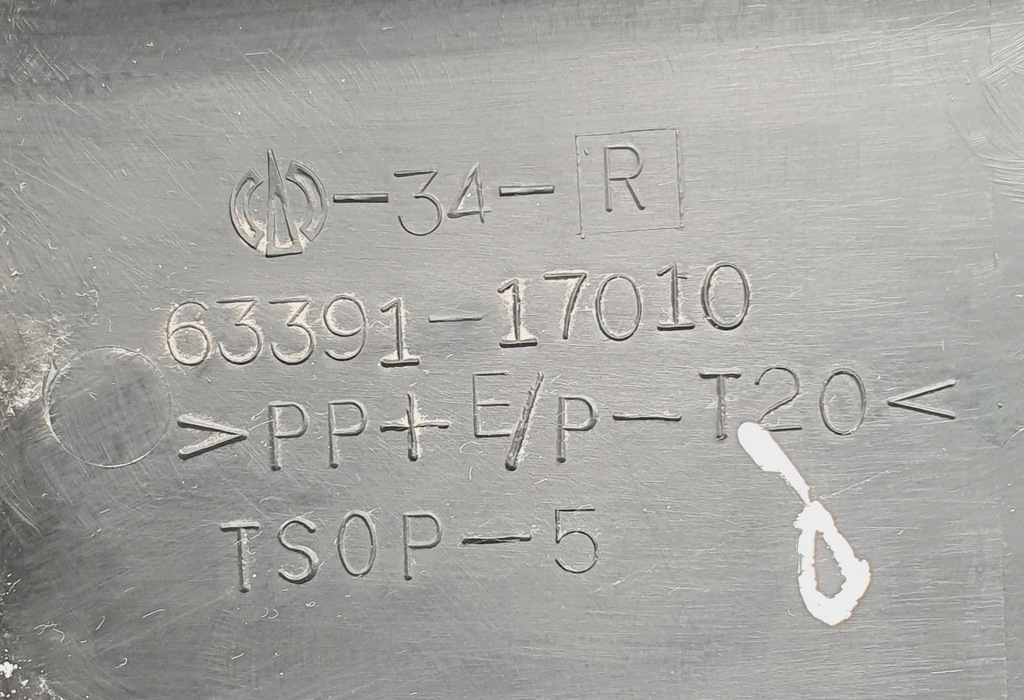 -34- R
63391-17010
>PP+E/P-T20<
TSOP-5